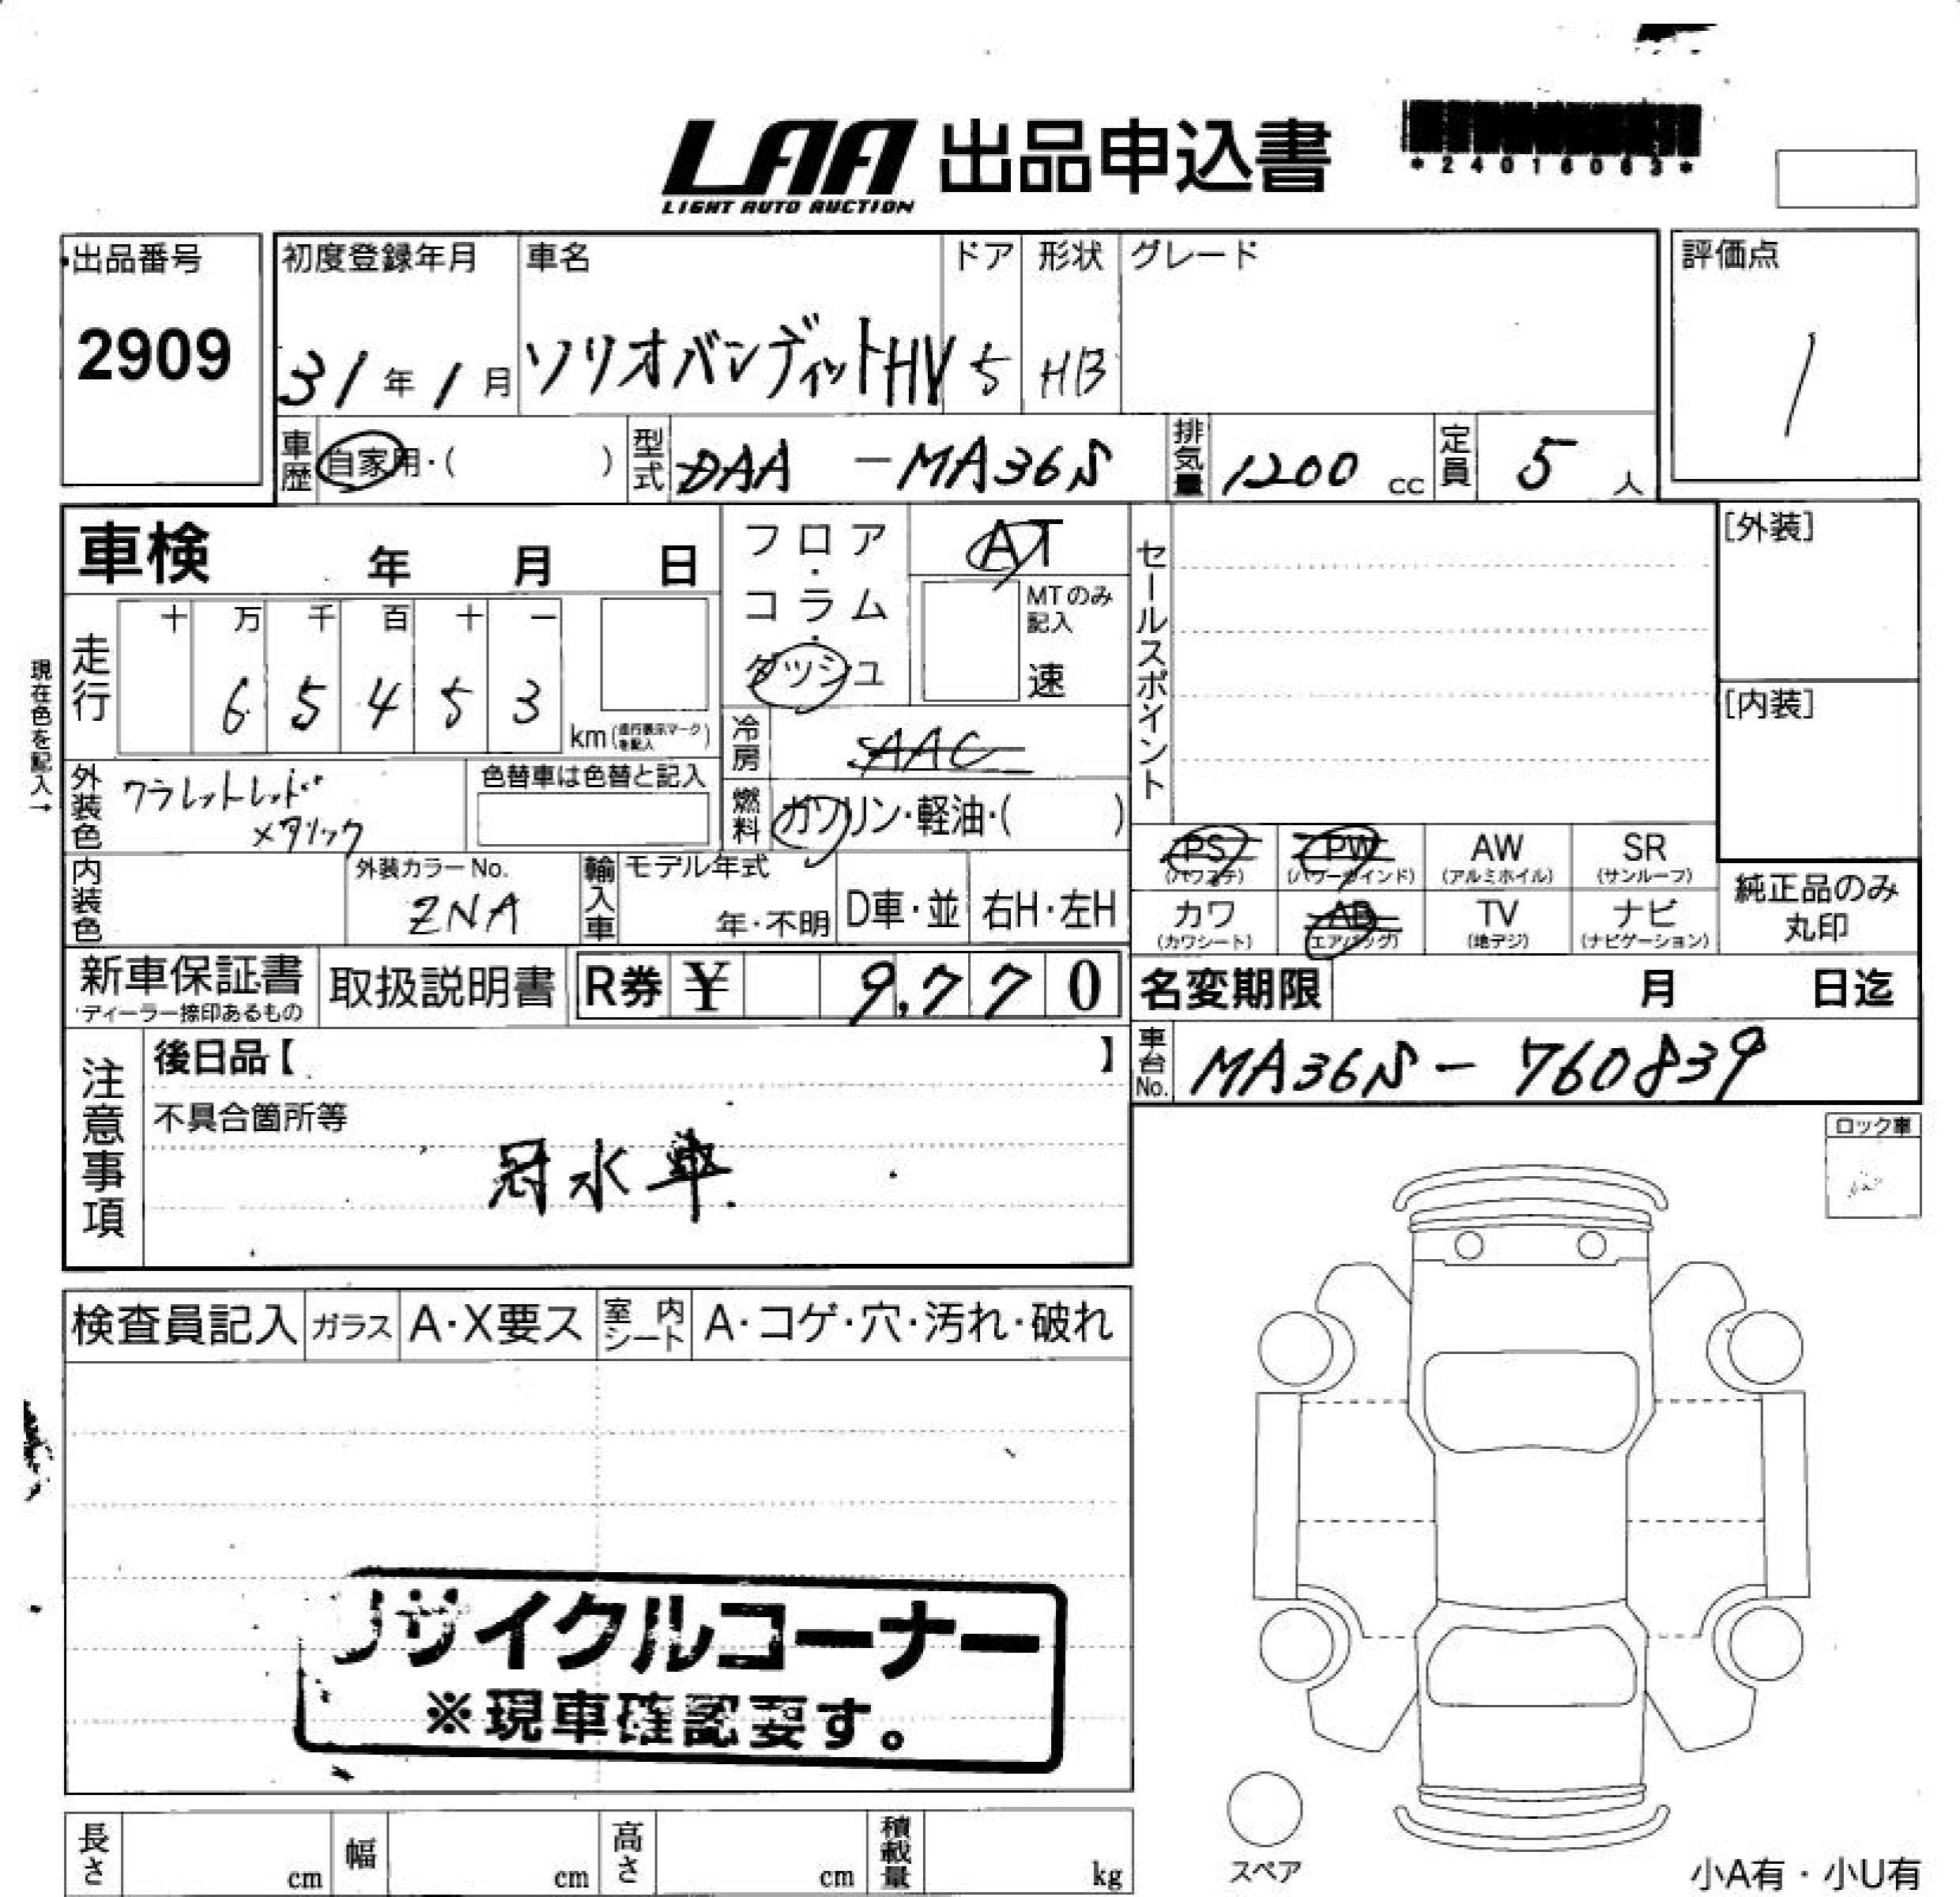 LAA 出品申込書
LIGHT AUTO AUCTION
*24016063*
出品番号
2909
初度登録年月
31年1月
車名
ソリオバンディットHV
ドア
5
形状
HB
グレード
評価点
1
車歴
自家用・( )
型式
DAA -MA36S
排気量
1200 cc
定員
5 人
車検 年 月 日
フロア・コラム・ダッシュ
AT
MTのみ
記入
速
セールスポイント
[外装]
[内装]
現在色を記入→
走行
十 万 千 百 十 一
6 5 4 5 3
km(走行表示マークを記入)
冷房
AAC
燃料
ガソリン・軽油・( )
外装色
クラレットレッド
メタリック
色替車は色替と記入
内装色
外装カラーNo.
ZNA
輸入車
モデル年式
年・不明
D車・並
右H・左H
PS
(パワステ)
PW
(パワーウインド)
AW
(アルミホイル)
SR
(サンルーフ)
カワ
(カワシート)
AB
(エアバッグ)
TV
(地デジ)
ナビ
(ナビゲーション)
純正品のみ
丸印
新車保証書
・ディーラー捺印あるもの
取扱説明書
R券 ¥ 9,770
名変期限 月 日迄
注意事項
後日品【 】
不具合箇所等
冠水車
車台No.
MA36S-760839
ロック車
検査員記入
ガラス
A・X要ス
室内シート
A・コゲ・穴・汚れ・破れ
リサイクルコーナー
※現車確認要す。
長さ cm
幅 cm
高さ cm
積載量 kg
スペア
小A有・小U有